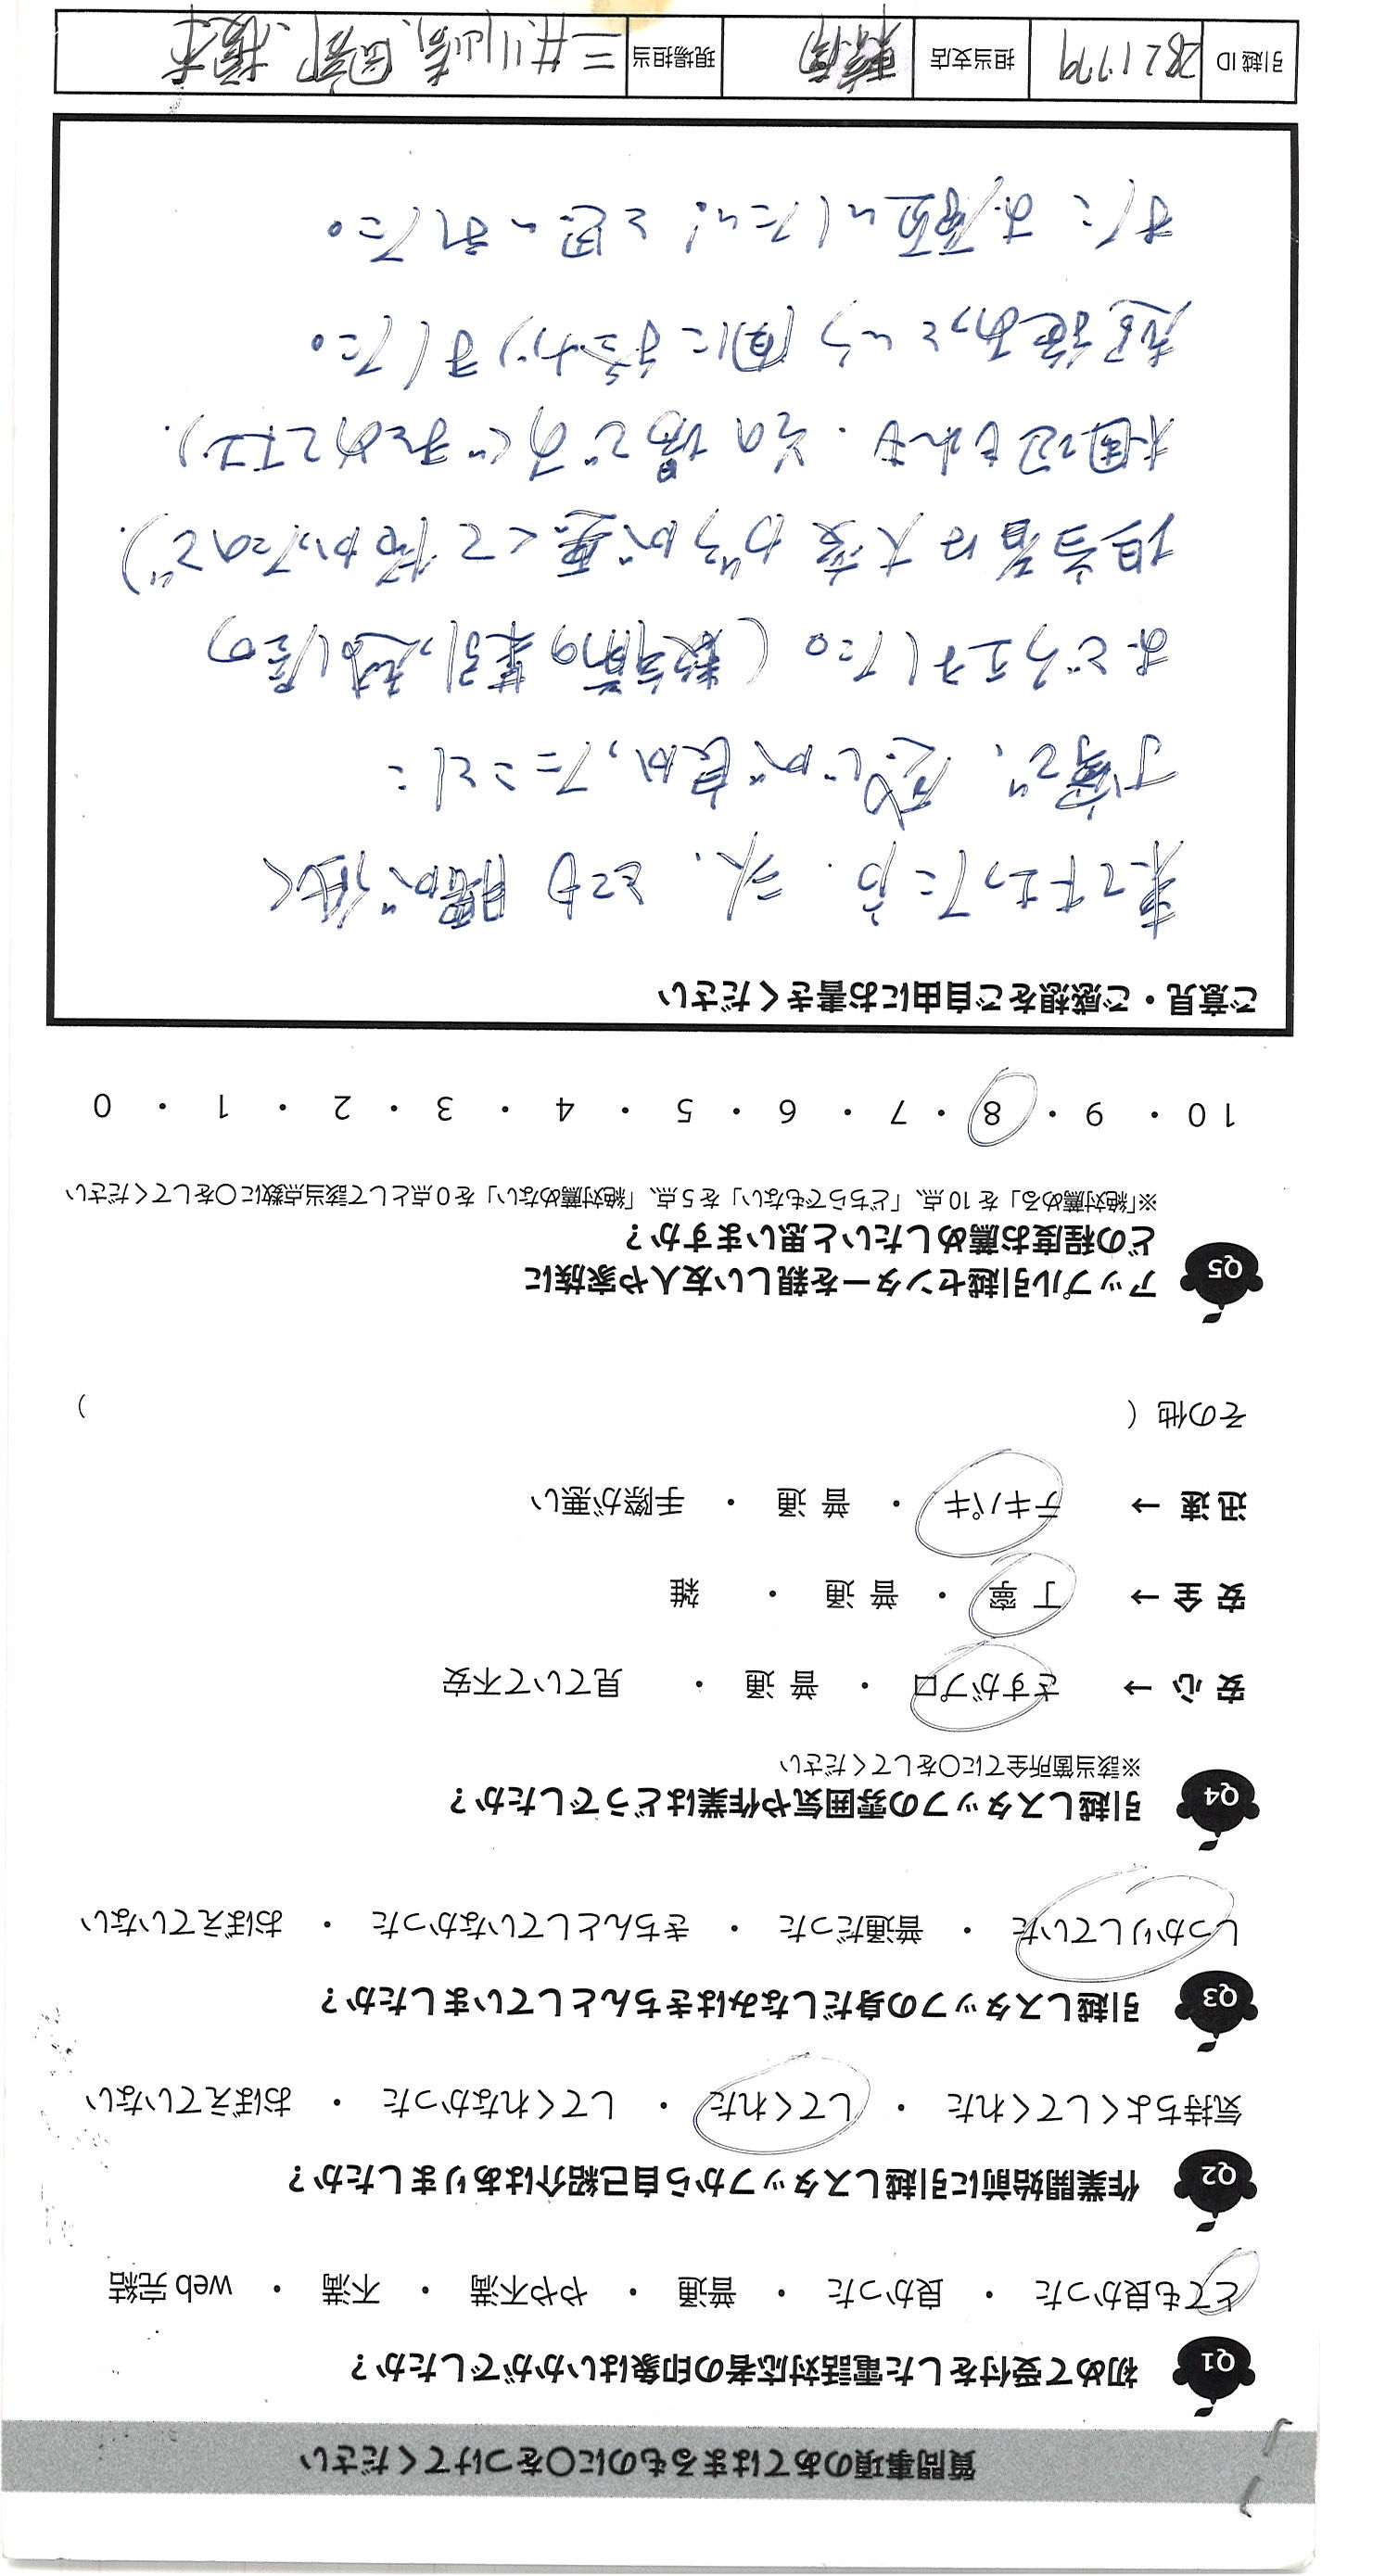 質問事項のあてはまるものに〇をつけてください
Q1 初めて受付をした電話対応者の印象はいかがでしたか？
とても良かった ・ 良かった ・ 普通 ・ やや不満 ・ 不満 ・ web 完結
Q2 作業開始前に引越しスタッフから自己紹介はありましたか？
気持ちよくしてくれた ・ してくれた ・ してくれなかった ・ おぼえていない
Q3 引越しスタッフの身だしなみはきちんとしていましたか？
しっかりしていた ・ 普通だった ・ きちんとしていなかった ・ おぼえていない
Q4 引越しスタッフの雰囲気や作業はどうでしたか？
※該当箇所全てに〇をしてください
安 心 → さすがプロ ・ 普 通 ・ 見ていて不安
安 全 → 丁 寧 ・ 普 通 ・ 雑
迅 速 → テキパキ ・ 普 通 ・ 手際が悪い
その他（ ）
Q5 アップル引越センターを親しい友人や家族に
どの程度お薦めしたいと思いますか？
※「絶対薦める」を 10 点、「どちらでもない」を 5 点、「絶対薦めない」を 0 点として該当点数に〇をしてください
10 ・ 9 ・ 8 ・ 7 ・ 6 ・ 5 ・ 4 ・ 3 ・ 2 ・ 1 ・ 0
ご意見・ご感想をご自由にお書きください
来て下さった方、 とても腰が低く
丁寧で、感じが良かったことに
おどろきました。(数年前の某引っ越し屋の
担当者は大変ガラが悪くて怖かったので).
梱包もれも、その場ですぐまとめて下さり.
後あっという間に
また お願いしたい! と思いました。
引越 ID 2821779 担当支店 現場担当 三井、川崎、